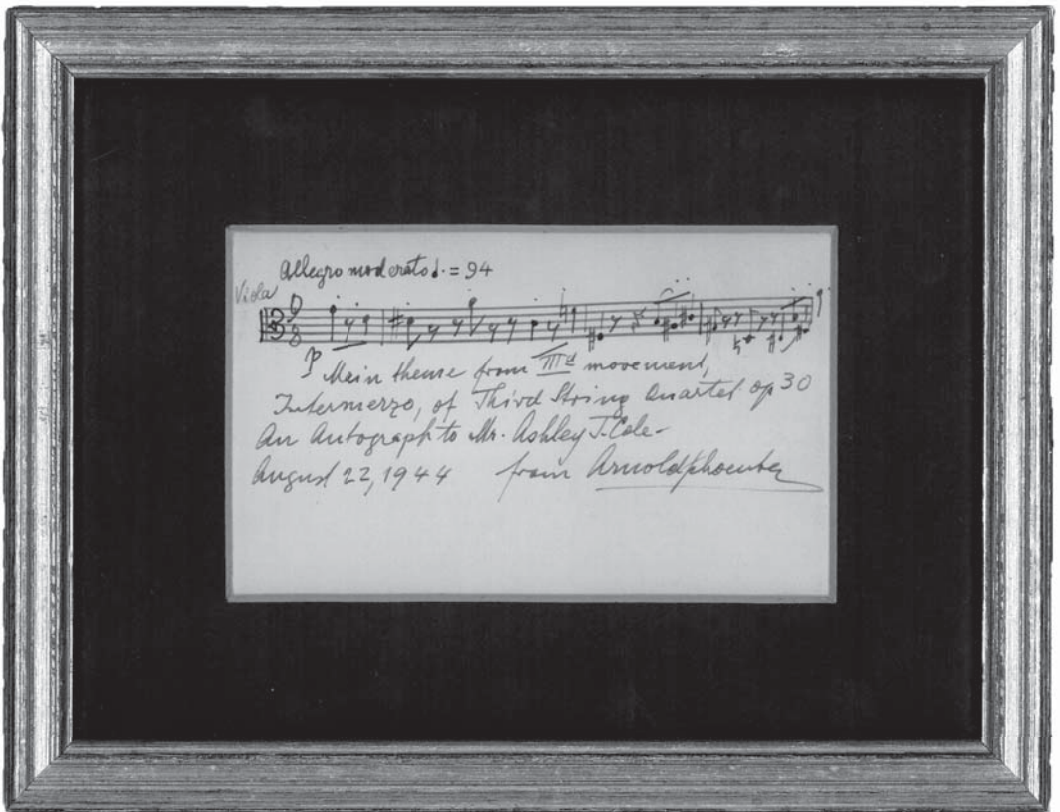 Allegro moderato ♩. = 94
Viola
9 8
p
Main theme from IIId movement,
Intermezzo, of Third String Quartet op 30
An Autograph to Mr. Ashley T. Cole-
August 22, 1944 from Arnold Schoenberg